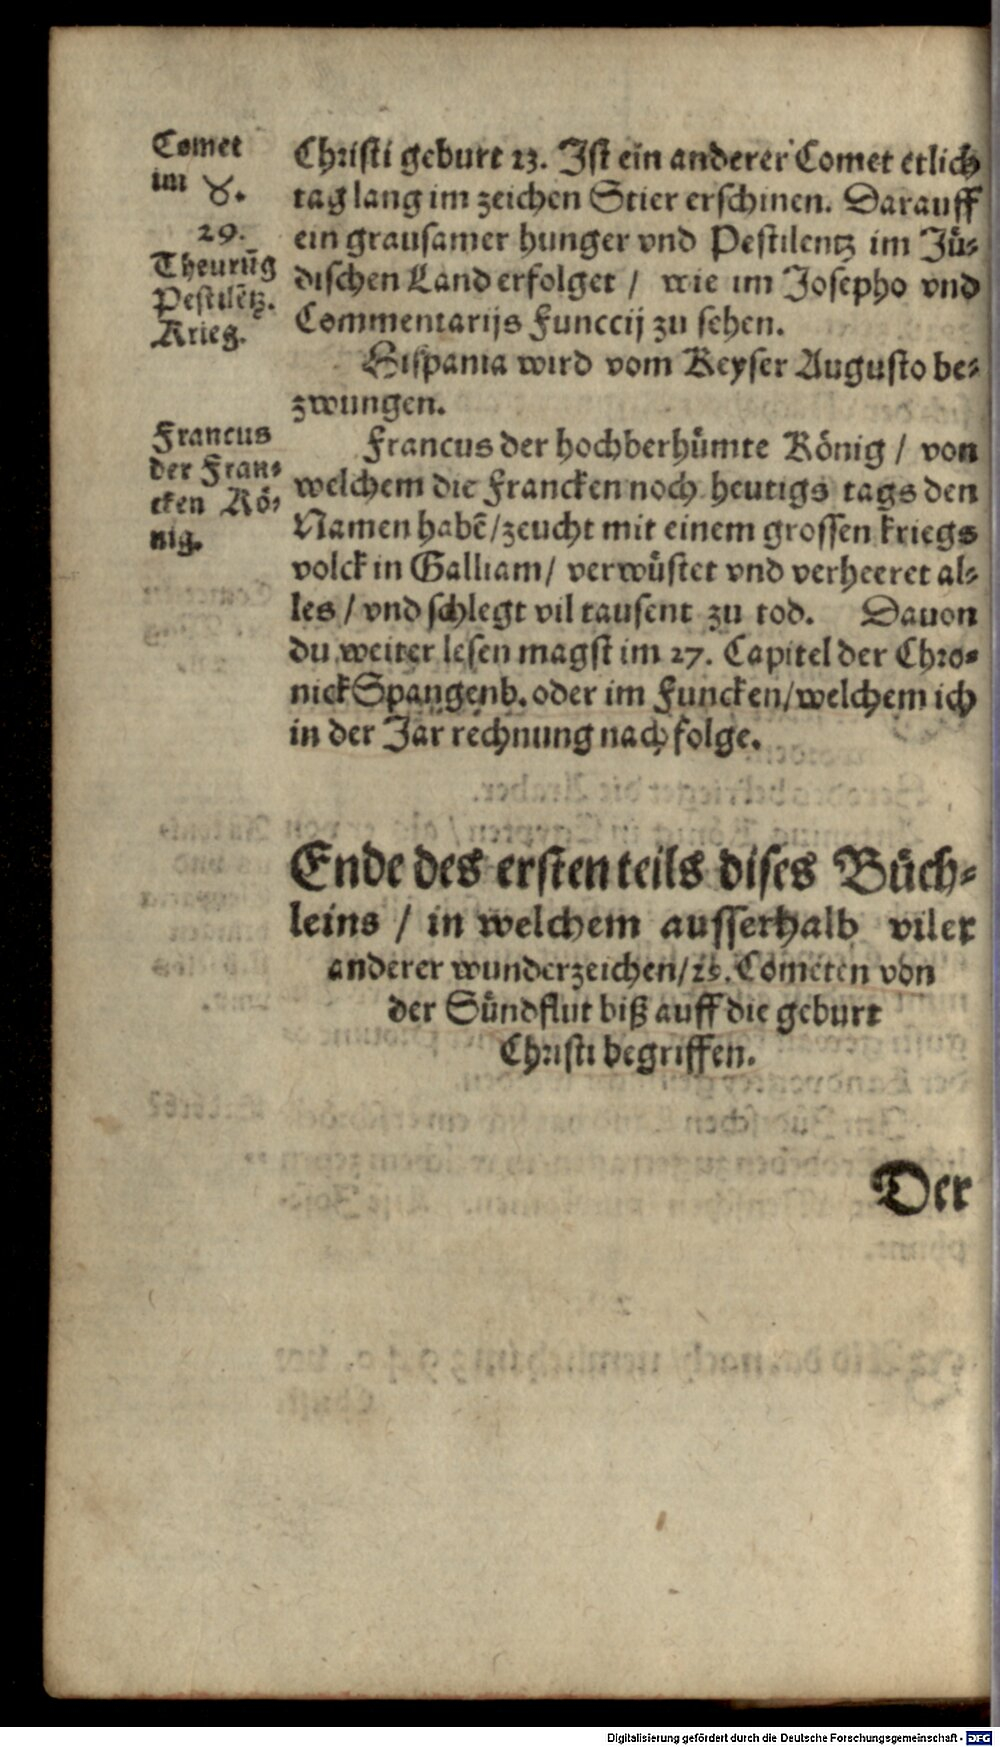 Comet
im ♉.
29.
Theurūg
Pestilētz.
Krieg.
Christi geburt 23. Ist ein anderer Comet etlich
tag lang im zeichen Stier erschinen. Darauff
ein grausamer hunger vnd Pestilentz im Jü-
dischen Land erfolget / wie im Josepho vnd
Commentarijs Funccij zu sehen.
Hispania wird vom Keyser Augusto be-
zwungen.
Francus
der Fran-
cken Kö-
nig.
Francus der hochberhümte König / von
welchem die Francken noch heutigs tags den
Namen habē/zeucht mit einem grossen kriegs
volck in Galliam/ verwüstet vnd verheeret al-
les / vnd schlegt vil tausent zu tod. Dauon
du weiter lesen magst im 27. Capitel der Chro-
nick Spangenb. oder im Funcken/welchem ich
in der Jar rechnung nach folge.
Ende des ersten teils dises Büch-
leins / in welchem ausserhalb viler
anderer wunderzeichen/ Cometen von
der Sündflut biß auff die geburt
Christi begriffen.
Der
Digitalisierung gefördert durch die Deutsche Forschungsgemeinschaft - DFG